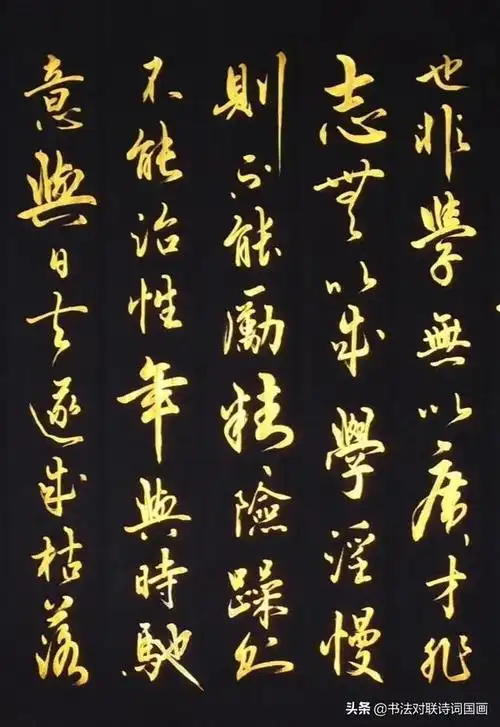 也非學無以廣才非
志無以成學淫慢
則不能勵精險躁則
不能治性年與時馳
意與日去遂成枯落
头条 @书法对联诗词国画